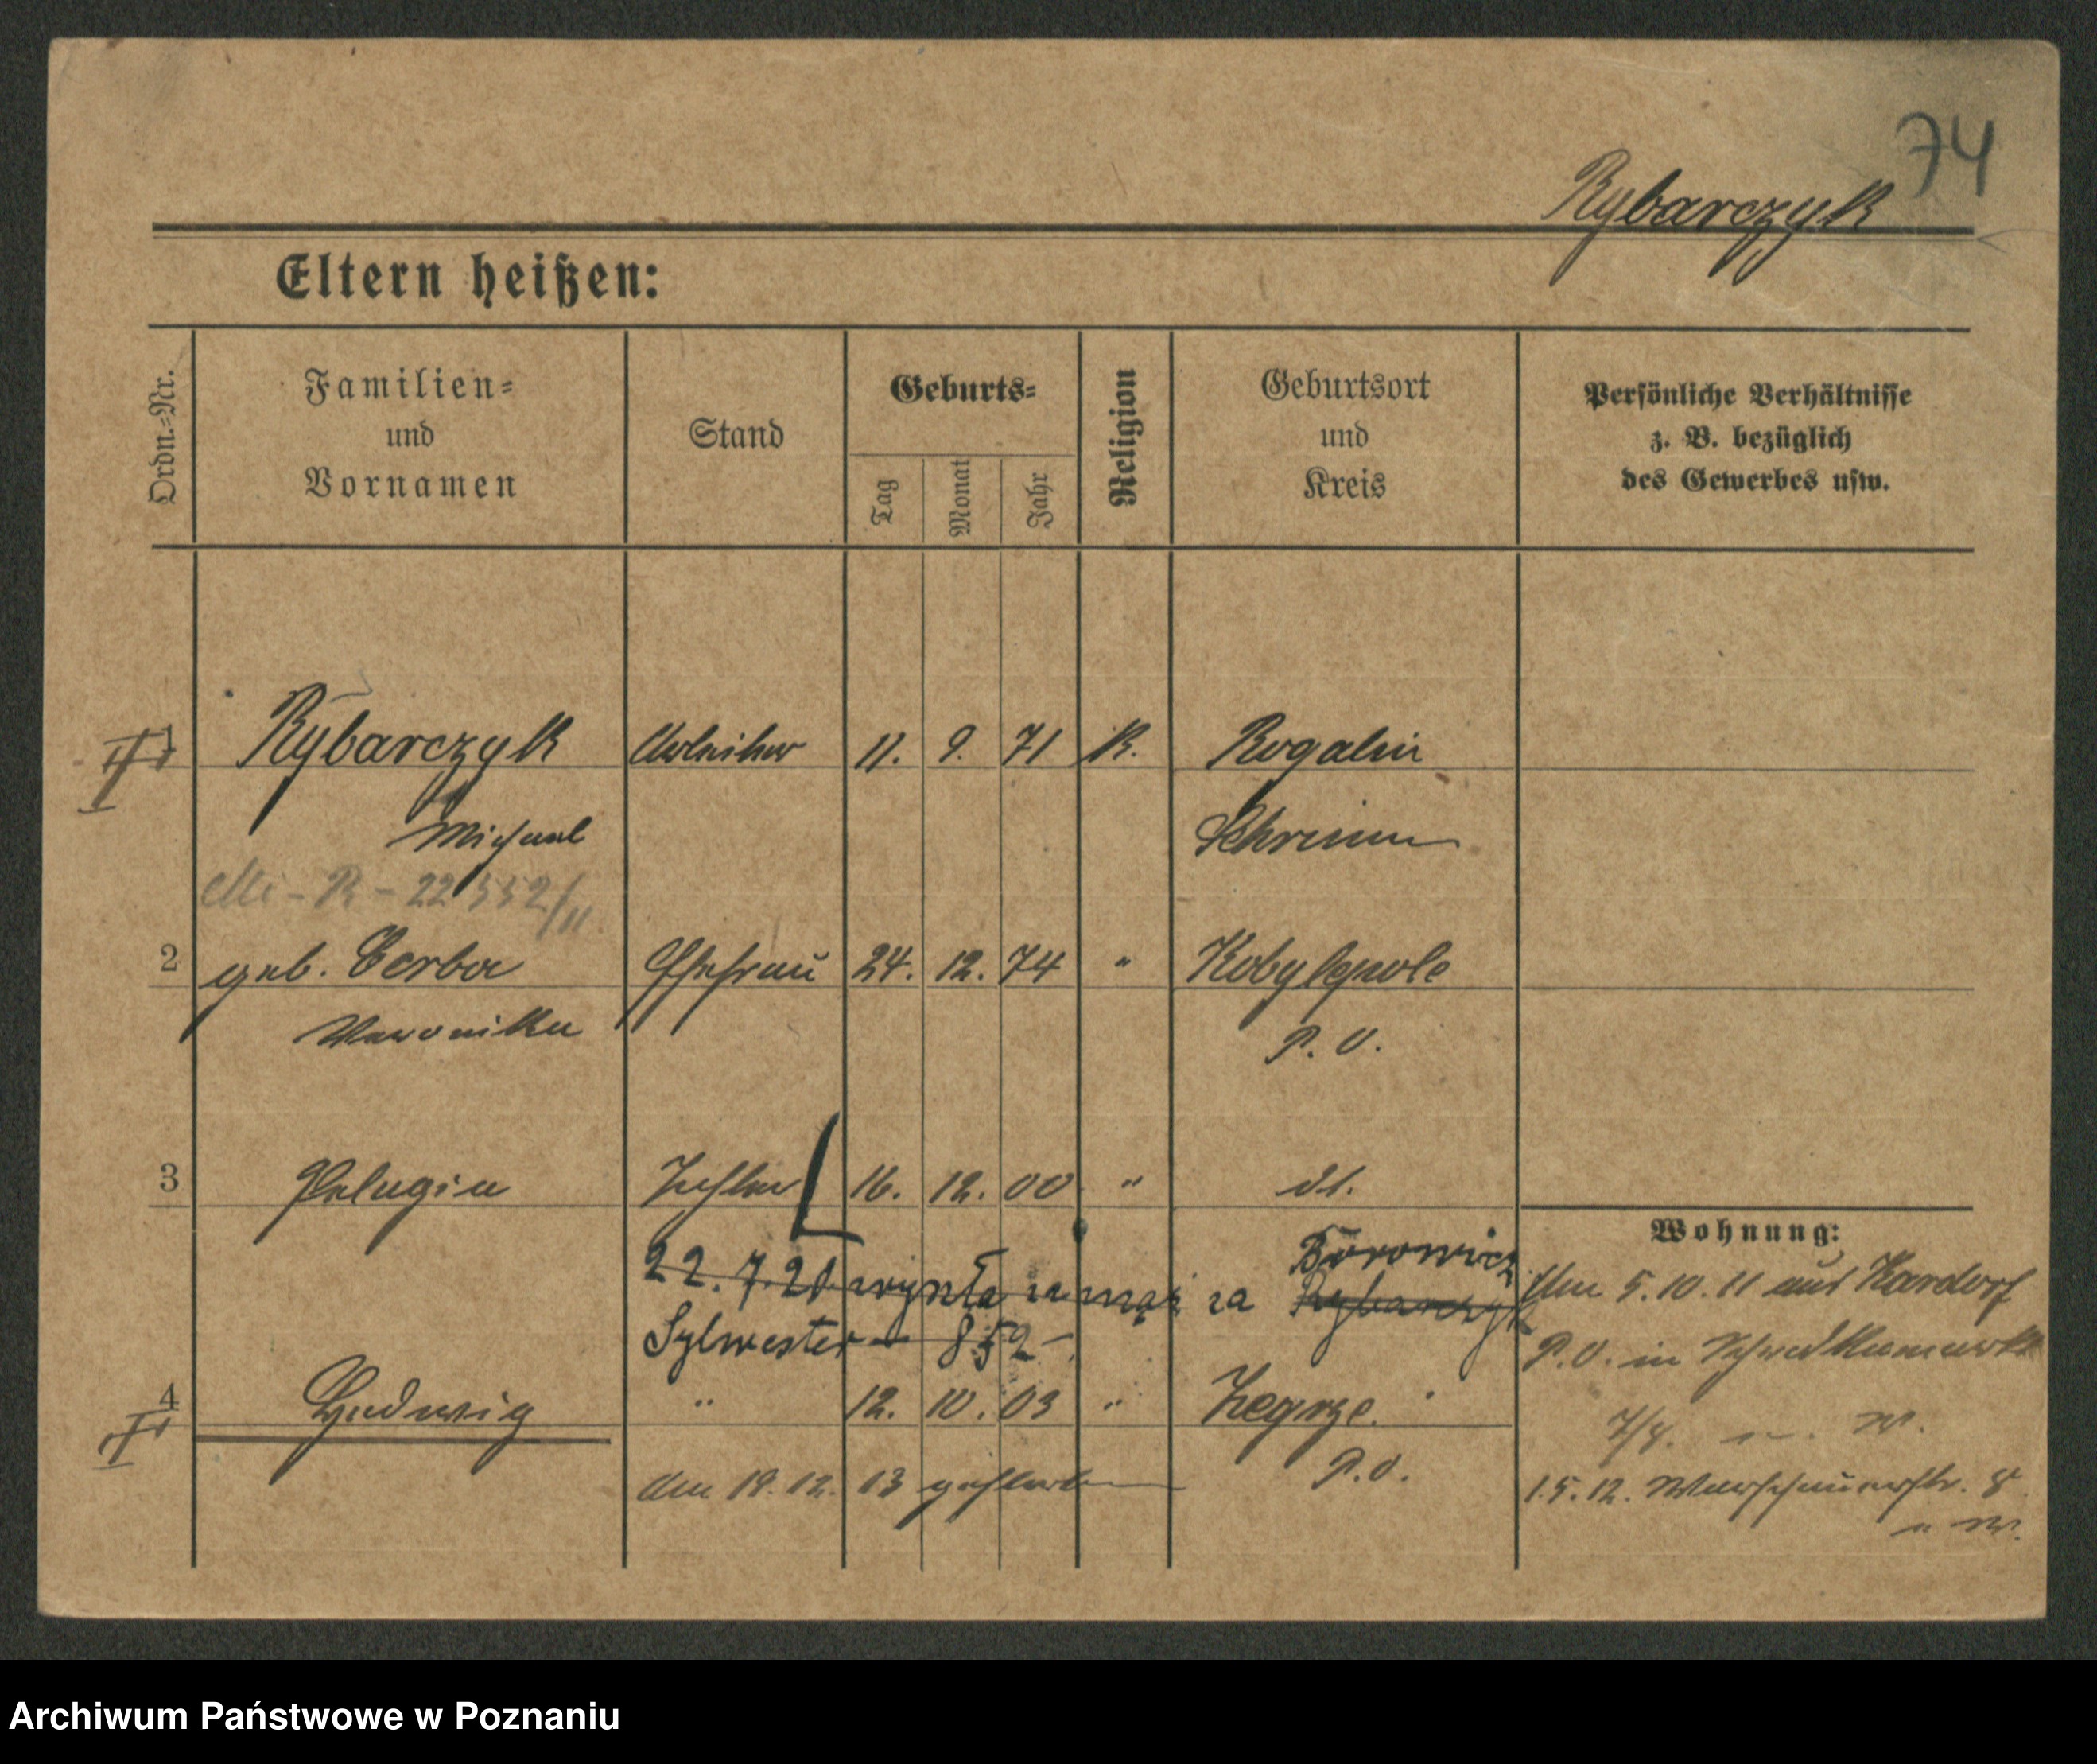 74
Rybarczyk
Eltern heißen:
Ordn.-Nr.
Familien-
und
Vornamen
Stand
Geburts-
Tag
Monat
Jahr
Religion
Geburtsort
und
Kreis
Persönliche Verhältnisse
z. B. bezüglich
des Gewerbes usw.
1 Rybarczyk Arbeiter 11. 9. 71 K. Rogalin
Michael Schrimm
2 geb. Cerba Ehefrau 24. 12. 74 " Kobylepole
Veronika P. O.
3 Pelagia Tochter 16. 12. 00 " dt.
Wohnung:
22. 7. 20 wyszła za mąż za Rybarczyk Borowicz
Sylwester 852
Am 5.10.11 aus
P.O. in
4 Hedwig " 12. 10. 03 " Zegrze.
P.O.
am 19. 12. 13 gestorben
7/4.
1.5.12. Warschauerstr. 8
Archiwum Państwowe w Poznaniu